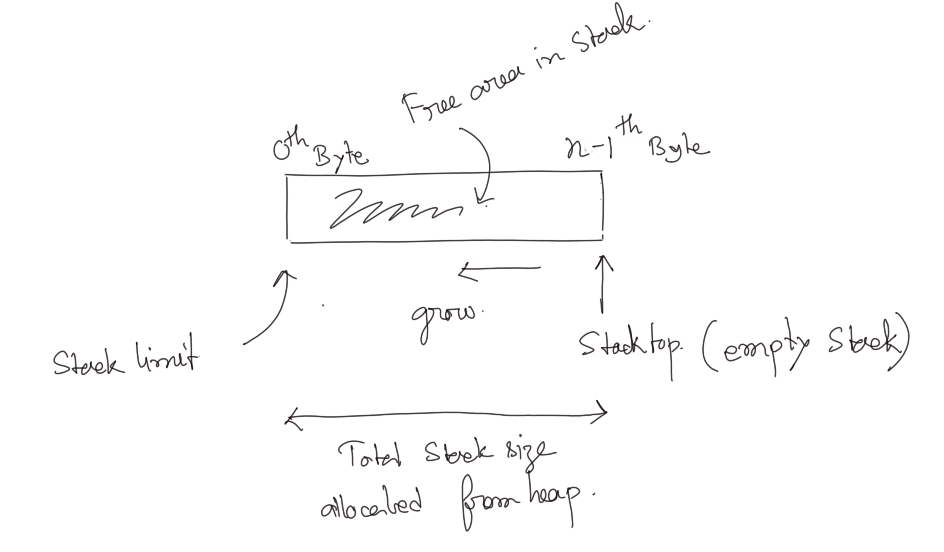 Free area in Stack.
0th Byte
n-1th Byte
grow.
Stack limit
Stacktop. (empty Stack)
Total Stack size
allocated from heap.